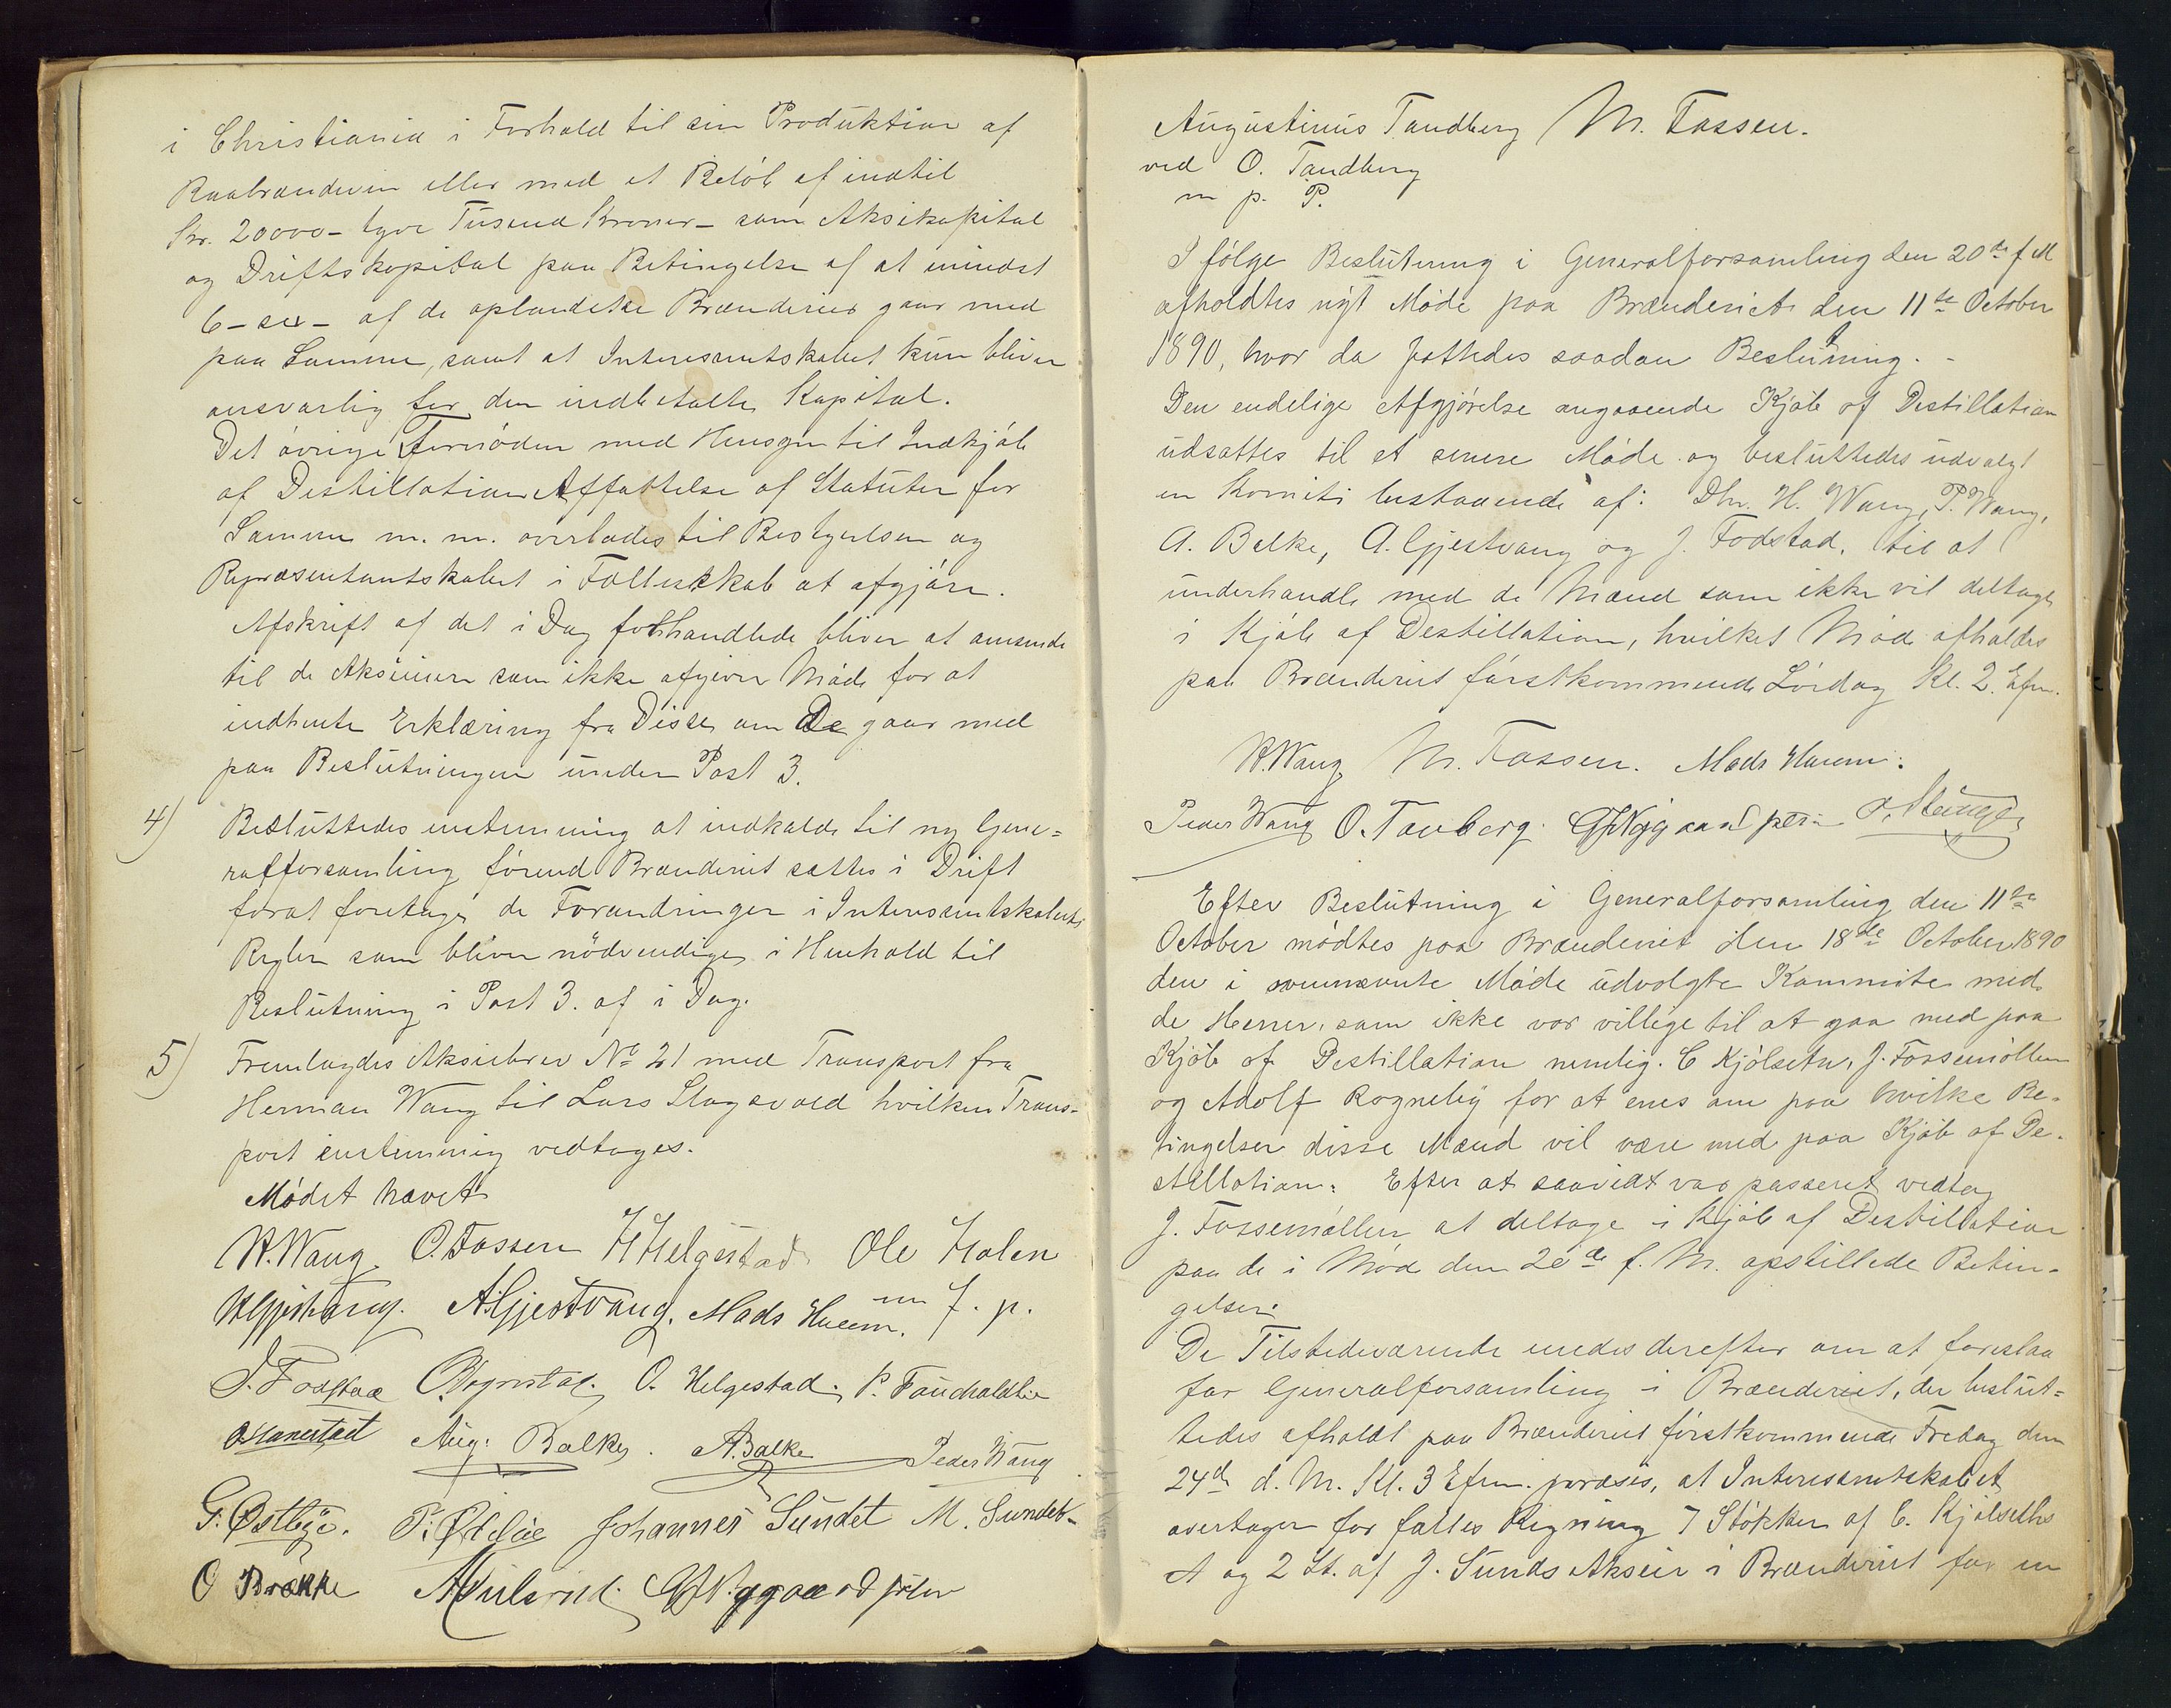 i Christiania i Forhold til sin Produktion af
Raabrændevin eller med et Beløb af indtil
Kr. 20000 – tyve Tusend Kroner – som Aksiekapital
og Driftskapital paa Betingelse af at mindst
6 – sex – af de oplandske Brænderier gaar med
paa Samme, samt at Interessentskabet kun bliver
ansvarlig for den indbetalte Kapital.
Det øvrige Fornødne med Hensyn til Indkjøb
af Destillation Affattelse af Statuter for
Samme m. m. overlodes til Bestyrelsen og
Repræsentantskabet i Fællesskab at afgjøre.
Afskrift af det i Dag forhandlede bliver at
til de Aksieiere som ikke afgiver Møde for at
indhente Erklæring fra Disse om De gaar med
paa Beslutningen under Post 3.
4) Besluttedes enstemmig at indkalde til ny Gene=
ralforsamling førend Brænderiet sættes i Drift
forat foretage de Forandringer i Interessentskabets
Regler som bliver nødvendige i Henhold til
Beslutning i Post 3. af i Dag.
5) Fremlagdes Aksiebrev No 21 med Transport fra
Herman Wang til Lars Slagsvold hvilken Trans-
port enstemmig vedtoges.
Mødet hævet
H. Wang. O. Fossen H Helgestad Ole Holen
A. Gjestvang. Mads Huem. m f. p.
J. Fodstad O. Helgestad. P.
Aug. Balke. A. Balke Peder Wang
G. Østbye. Johannes Sundet M. Sundet
O Brække G Nygaard
Augustinus Tandberg M. Fossen.
ved O. Tandberg
m p. P.
I følge Beslutning i Generalforsamling den 20de f M
afholdtes nyt Møde paa Brænderiet den 11te October
1890, hvor da fattedes saadan Beslutning. -
Den endelige Afgjørelse angaaende Kjøb af Destillation
udsattes til et senere Møde og besluttedes udvalgt
en Komite bestaaende af: Dhr. H. Wang, P. Wang,
A. Balke, A. Gjestvang og J. Fodstad, til at
underhandle med de Mænd som ikke vil deltage
i Kjøb af Destillation, hvilket Møde afholdes
paa Brænderiet førstkommende Lørdag Kl. 2. Efm.
H. Wang M. Fossen. Mads Huem.
Peder Wang O. Tanberg. G Nygaard
Efter Beslutning i Generalforsamling den 11te
October mødtes paa Brænderiet den 18de October 1890
den i ovennævnte Møde udvalgte Kommite med
de Herrer, som ikke var villige til at gaa med paa
Kjøb af Destillation nemlig. C Kjølseth, J. Fossemøllen
og Adolf Rogneby for at enes om paa hvilke Be-
tingelser disse Mænd vil være med paa Kjøb af De-
stillation. Efter at saavidt var passeret vedtog
J. Fossemøllen at deltage i Kjøb af Destillation
paa de i Møde den 20de f. M. opstillede Betin-
gelser.
De Tilstedeværende enedes derefter om at foreslaa
for Generalforsamling i Brænderiet, der beslut=
tedes afholdt paa Brænderiet førstkommende Fredag den
24de d. M. Kl. 3 Efm. præsis, at Interessentskabet
overtager for fælles Regning 7 Støkker af C. Kjølseths
A og 2 St. af J. Sunds Aksier i Brænderiet for en